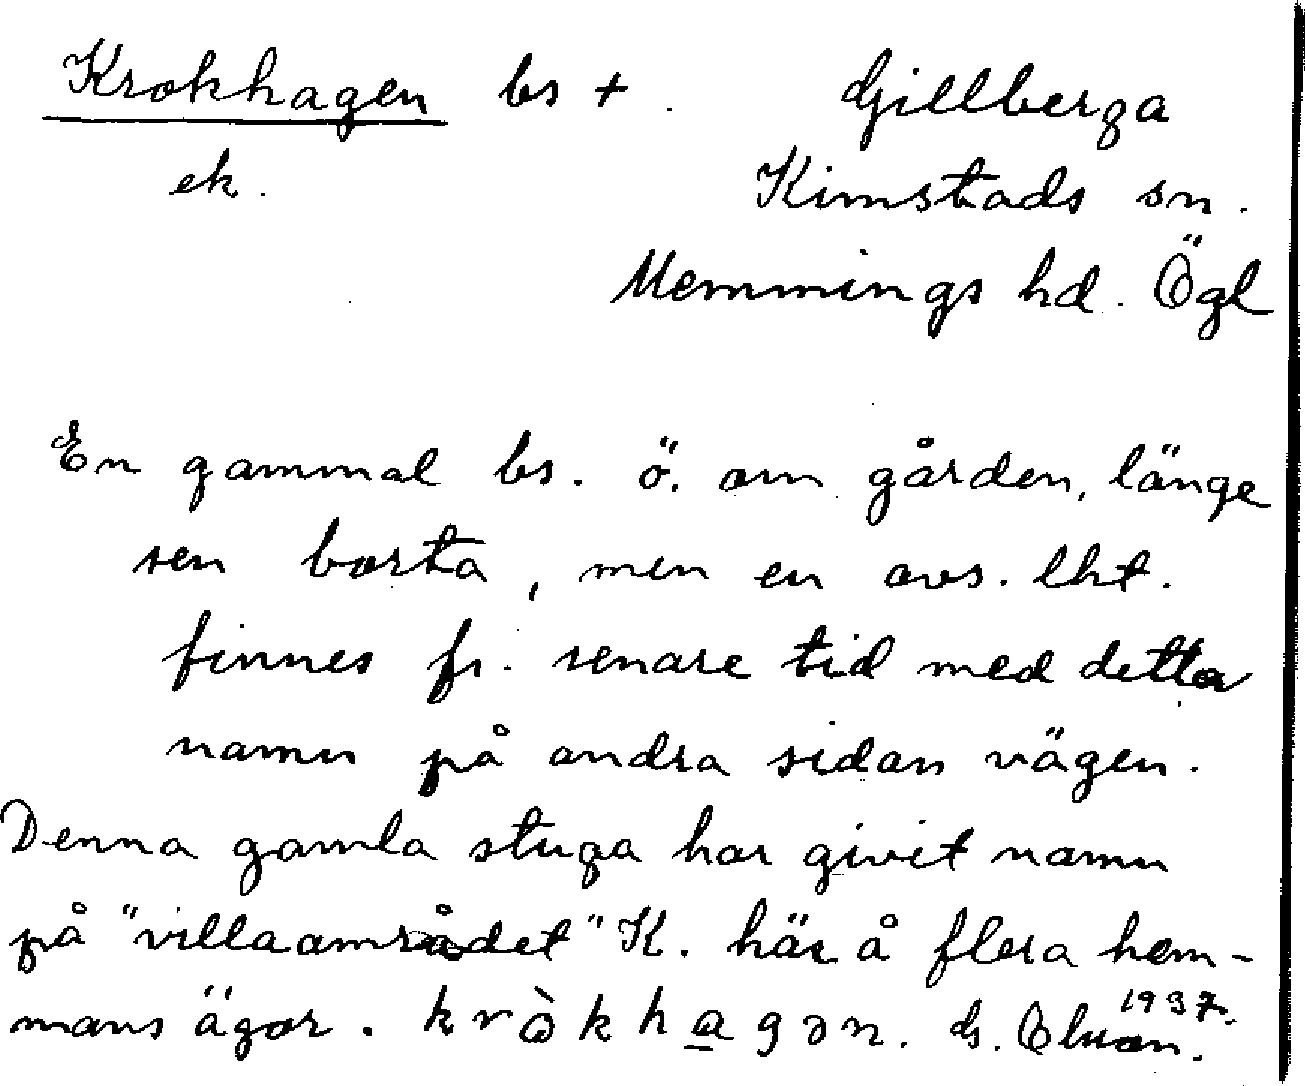 Krokhagen bs + . Gillberga
ek. Kimstads sn.
Memmings hd. Ögl
En gammal bs. ö. om gården, länge
sen borta, men en avs. lht.
finnes fr. senare tid med detta
namn på andra sidan vägen.
Denna gamla stuga har givit namn
på "villaområdet" K. här å flera hem-
mans ägor. kròkhagən. G. 1937.